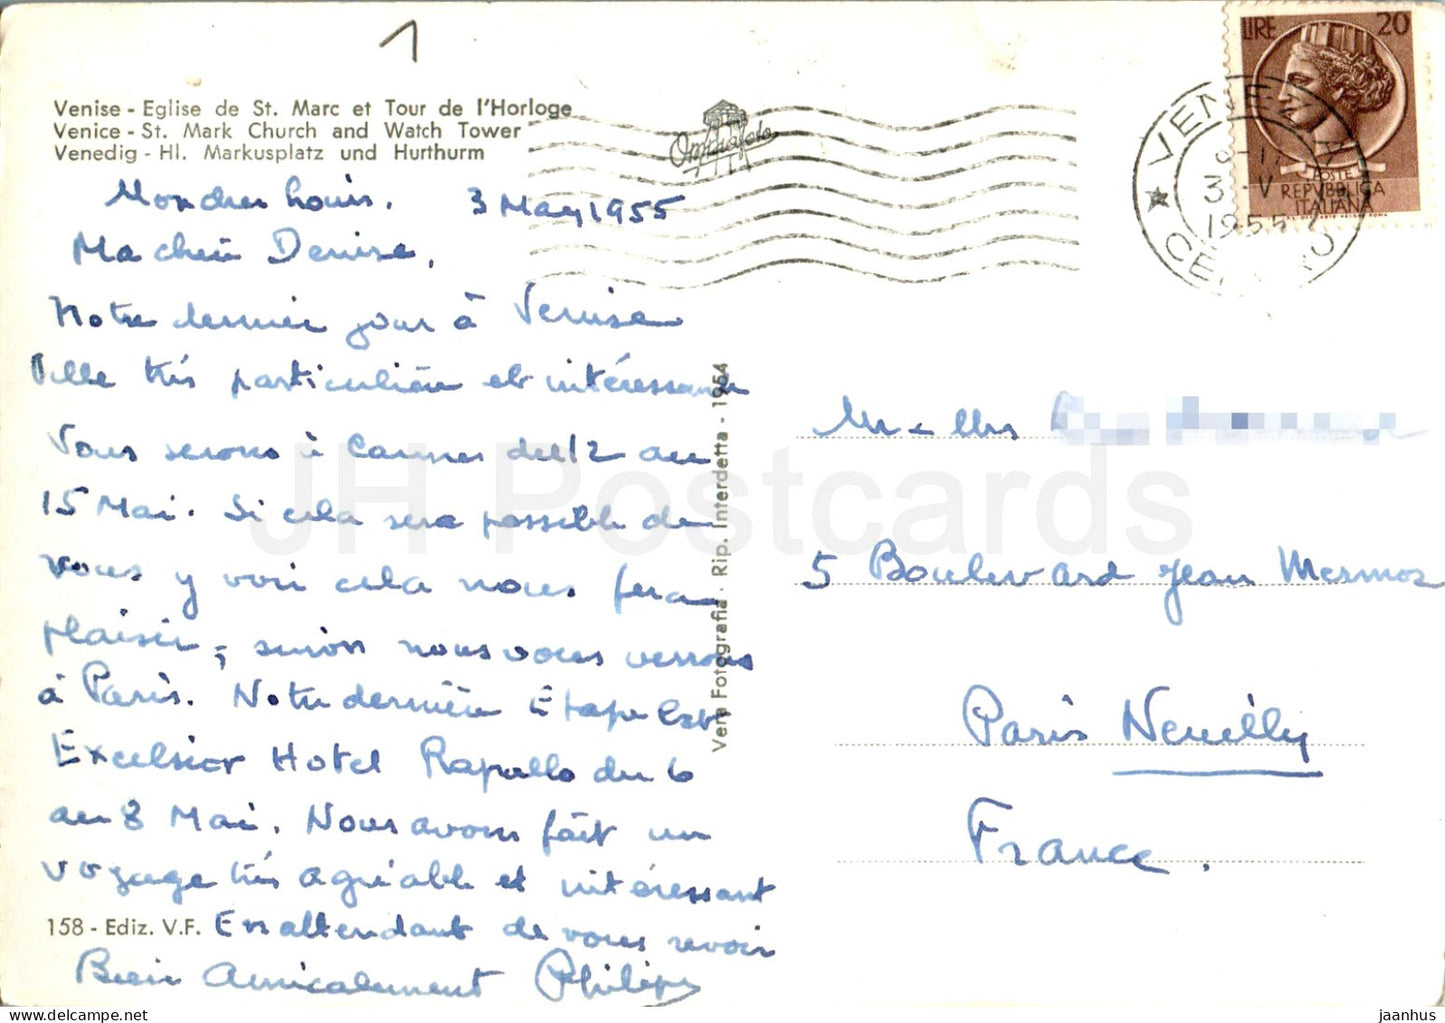 1
Venise - Eglise de St. Marc et Tour de l'Horloge
Venice - St. Mark Church and Watch Tower
Venedig - Hl. Markusplatz und Hurthurm
Omniafoto
LIRE 20
POSTE
REPVBBLICA
ITALIANA
VENEZIA
CENTRO
3 - V
1955
Mon cher Louis. 3 May 1955
Ma chère Denise,
Notre dernier jour à Venise
Ville très particulière et intéressante
Vous serons à Cannes du 12 au
15 Mai. Si cela sera possible de
vous y voir cela nous fera
plaisir, sinon nous vous verrons
à Paris. Notre dernière Etape est
Excelsior Hotel Rapallo du 6
au 8 Mai. Nous avons fait un
voyage très agréable et intéressant
158 - Ediz. V.F. En attendant de vous revoir
Bien Amicalement Philippe
Vera Fotografia - Rip. Interdetta - 1954
5 Boulevard Jean Mermoz
Paris Neuilly
France.
JH Postcards
jaanhus
www.jhpostcards.com